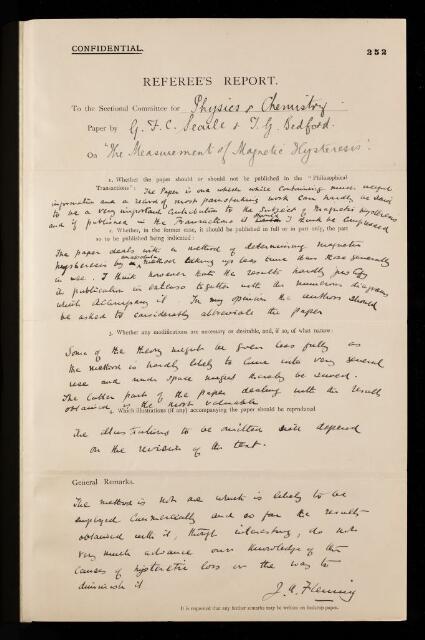 CONFIDENTIAL.
252
REFEREE'S REPORT.
To the Sectional Committee for Physics & Chemistry
Paper by G. F. C. Searle & T. G. Bedford.
On "The Measurement of Magnetic Hysteresis".
1. Whether the paper should or should not be published in the "Philosophical
Transactions": The Paper is one which while containing much useful
information and a record of most painstaking work can hardly be said
to be a very important contribution to the subject of Magnetic Hysteresis
and if published in the Transactions it should I think be compressed
2. Whether, in the former case, it should be published in full or in part only, the part
so to be published being indicated:
The paper deals with a method of determining magnetic
hysteresis by a method taking up less time than those generally
in use. I think however that the results hardly justify
its publication in extenso together with the numerous diagrams
which accompany it. In my opinion the authors should
be asked to considerably abbreviate the paper
3. Whether any modifications are necessary or desirable, and, if so, of what nature:
Some of the theory might be given less fully as
the method is hardly likely to come into very general
use and much space might thereby be saved.
The latter part of the paper dealing with the results
obtained is the most valuable
4. Which illustrations (if any) accompanying the paper should be reproduced
The illustrations to be omitted will depend
on the revision of the text.
General Remarks.
The method is not one which is likely to be
employed commercially and so far the results
obtained with it, though interesting, do not
very much advance our knowledge of the
causes of hysteretic loss or the way to
diminish it
J. A. Fleming
It is requested that any further remarks may be written on foolscap paper.